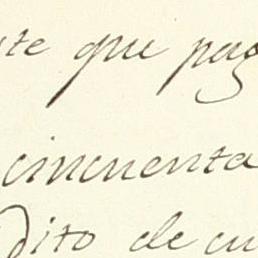 ste que pag
cincuenta
Dito de cu